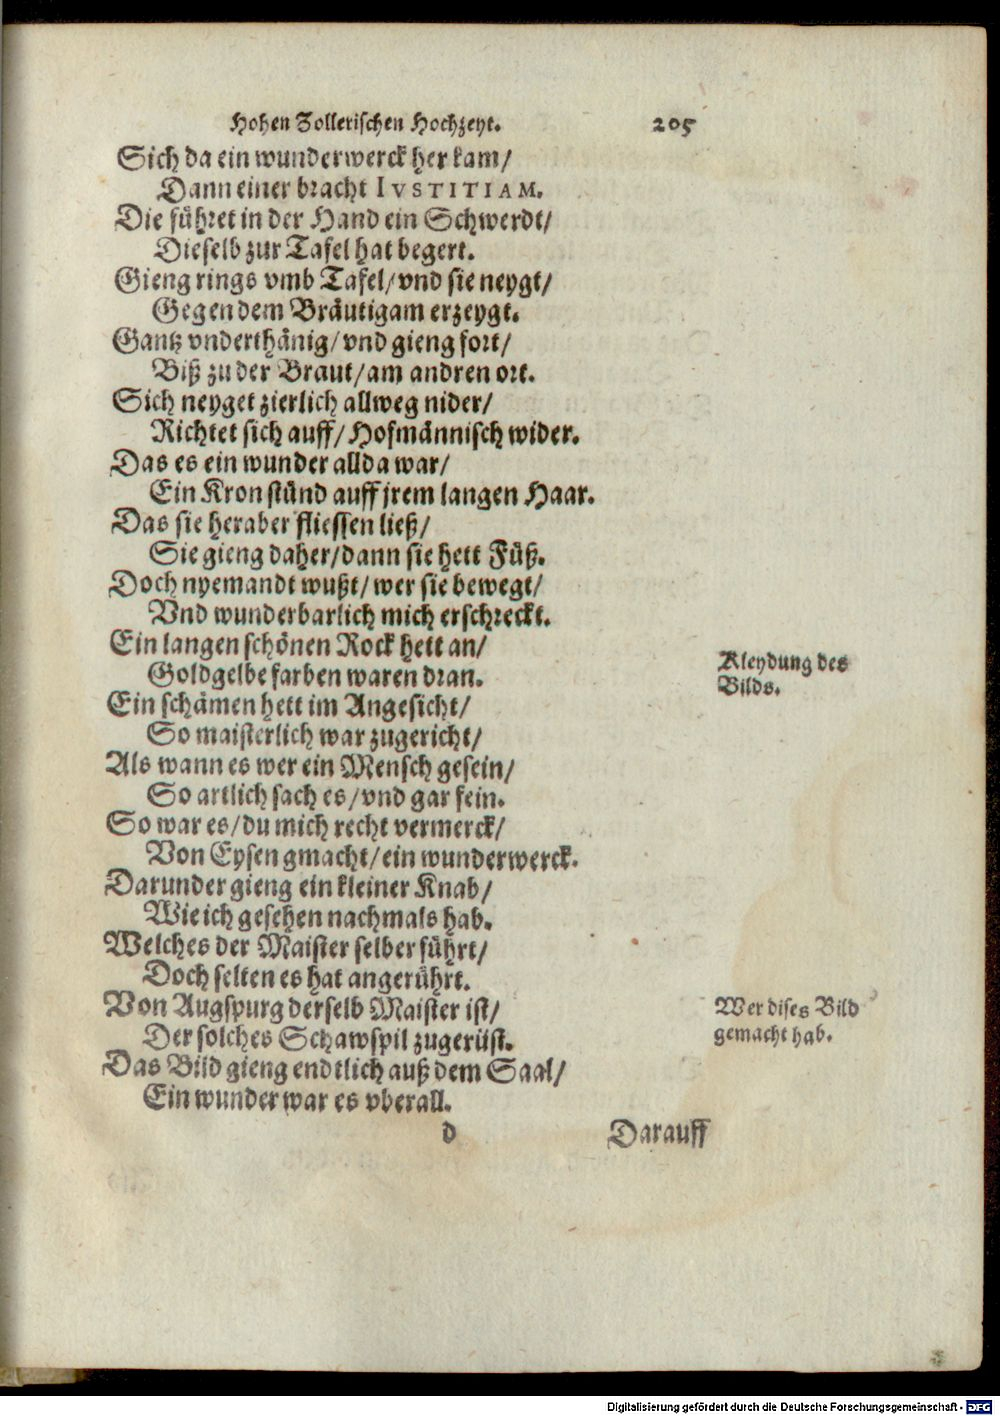 Hohen Zollerischen Hochzeyt. 205
Sich da ein wunderwerck her kam/
Dann einer bracht IVSTITIAM.
Die führet in der Hand ein Schwerdt/
Dieselb zur Tafel hat begert.
Gieng rings vmb Tafel/vnd sie neygt/
Gegen dem Bräutigam erzeygt.
Gantz vnderthänig/vnd gieng fort/
Biß zu der Braut/am andren ort.
Sich neyget zierlich allweg nider/
Richtet sich auff/Hofmännisch wider.
Das es ein wunder allda war/
Ein Kron stünd auff jrem langen Haar.
Das sie heraber fliessen ließ/
Sie gieng daher/dann sie hett Füß.
Doch nyemandt wußt/wer sie bewegt/
Vnd wunderbarlich mich erschreckt.
Ein langen schönen Rock hett an/
Goldgelbe farben waren dran.
Kleydung des
Bilds.
Ein schämen hett im Angesicht/
So maisterlich war zugericht/
Als wann es wer ein Mensch gesein/
So artlich sach es/vnd gar fein.
So war es/du mich recht vermerck/
Von Eysen gmacht/ein wunderwerck.
Darunder gieng ein kleiner Knab/
Wie ich gesehen nachmals hab.
Welches der Maister selber führt/
Doch selten es hat angerührt.
Von Augspurg derselb Maister ist/
Der solches Schawspil zugerüst.
Wer dises Bild
gemacht hab.
Das Bild gieng endtlich auß dem Saal/
Ein wunder war es vberall.
d Darauff
Digitalisierung gefördert durch die Deutsche Forschungsgemeinschaft - DFG